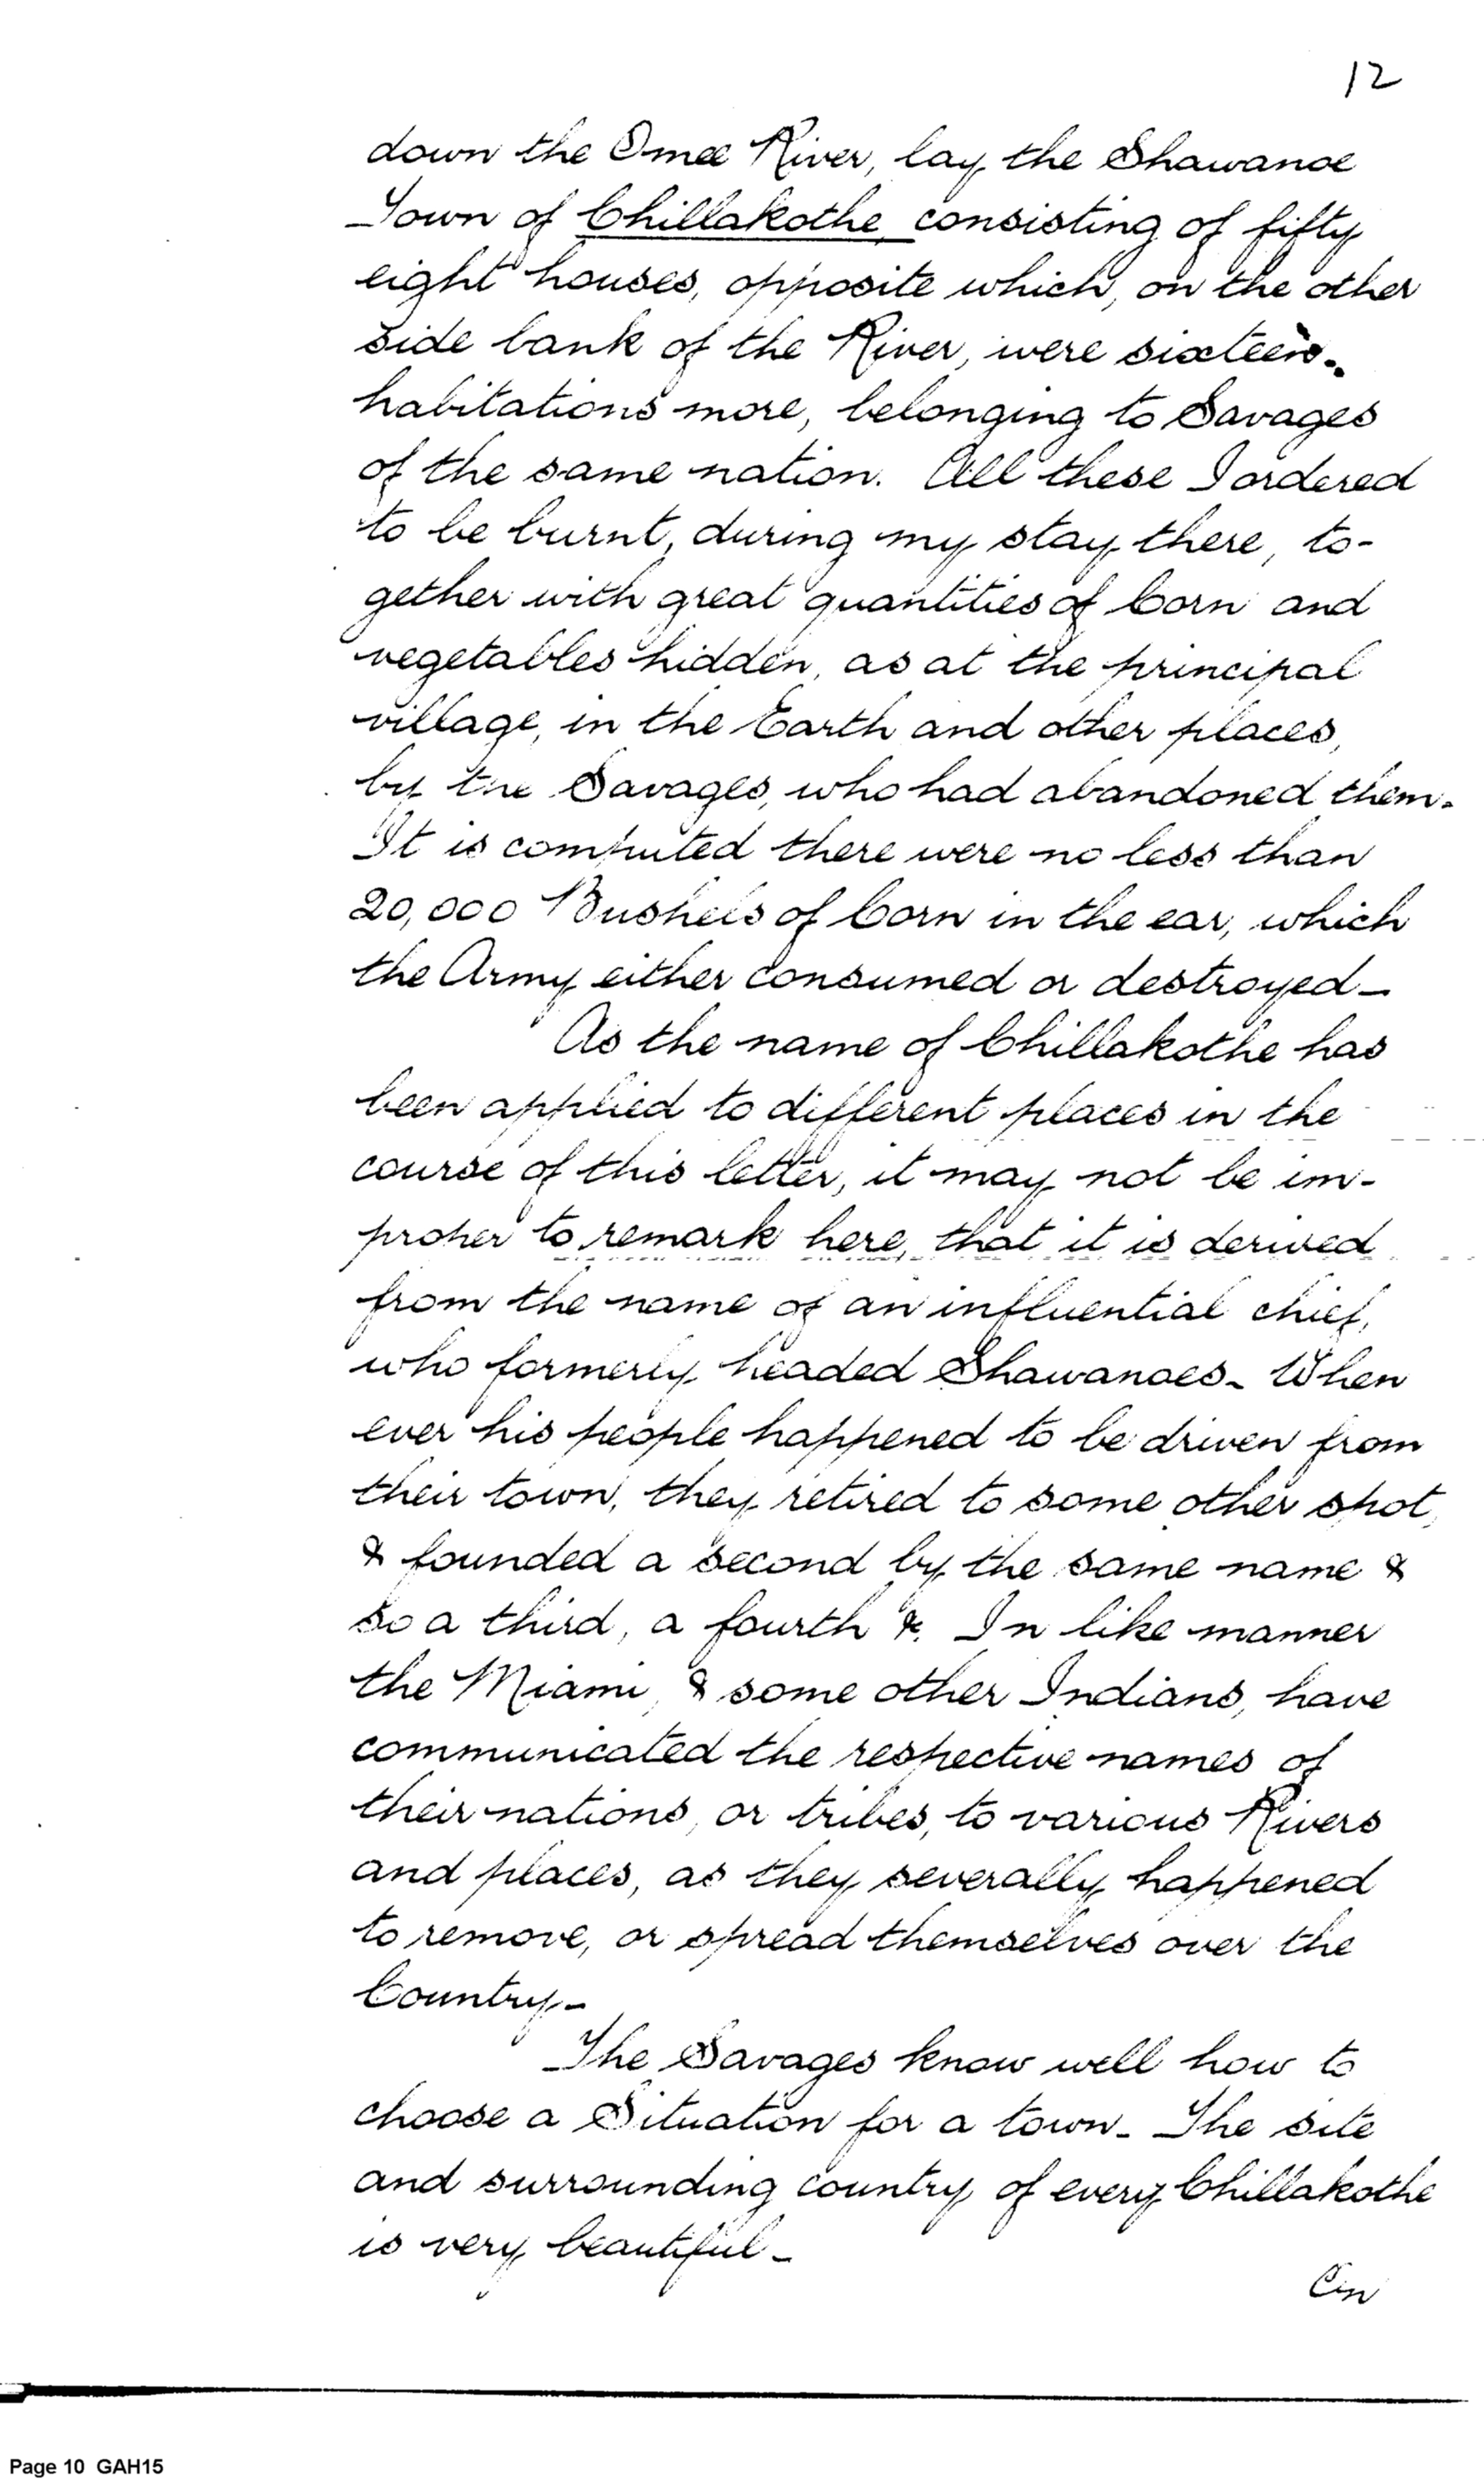 12
down the Omee River, lay the Shawanoe
Town of Chillakothe, consisting of fifty
eight houses, opposite which, on the other
side bank of the River, were sixteen
habitations more, belonging to Savages
of the same nation. All these I ordered
to be burnt, during my stay there, to-
gether with great quantities of Corn and
vegetables hidden, as at the principal
village, in the Earth and other places,
by the Savages, who had abandoned them.
It is computed there were no less than
20,000 Bushels of Corn in the ear, which
the Army either consumed or destroyed—
As the name of Chillakothe has
been applied to different places in the
course of this letter, it may not be im-
proper to remark here, that it is derived
from the name of an influential chief,
who formerly headed Shawanoes— When
ever his people happened to be driven from
their town, they retired to some other spot,
& founded a second by the same name &
so a third, a fourth &. In like manner
the Miami, & some other Indians, have
communicated the respective names of
their nations, or tribes, to various Rivers
and places, as they severally happened
to remove, or spread themselves over the
Country—
The Savages know well how to
choose a Situation for a town— The site
and surrounding country of every Chillakothe
is very beautiful—
Page 10 GAH15